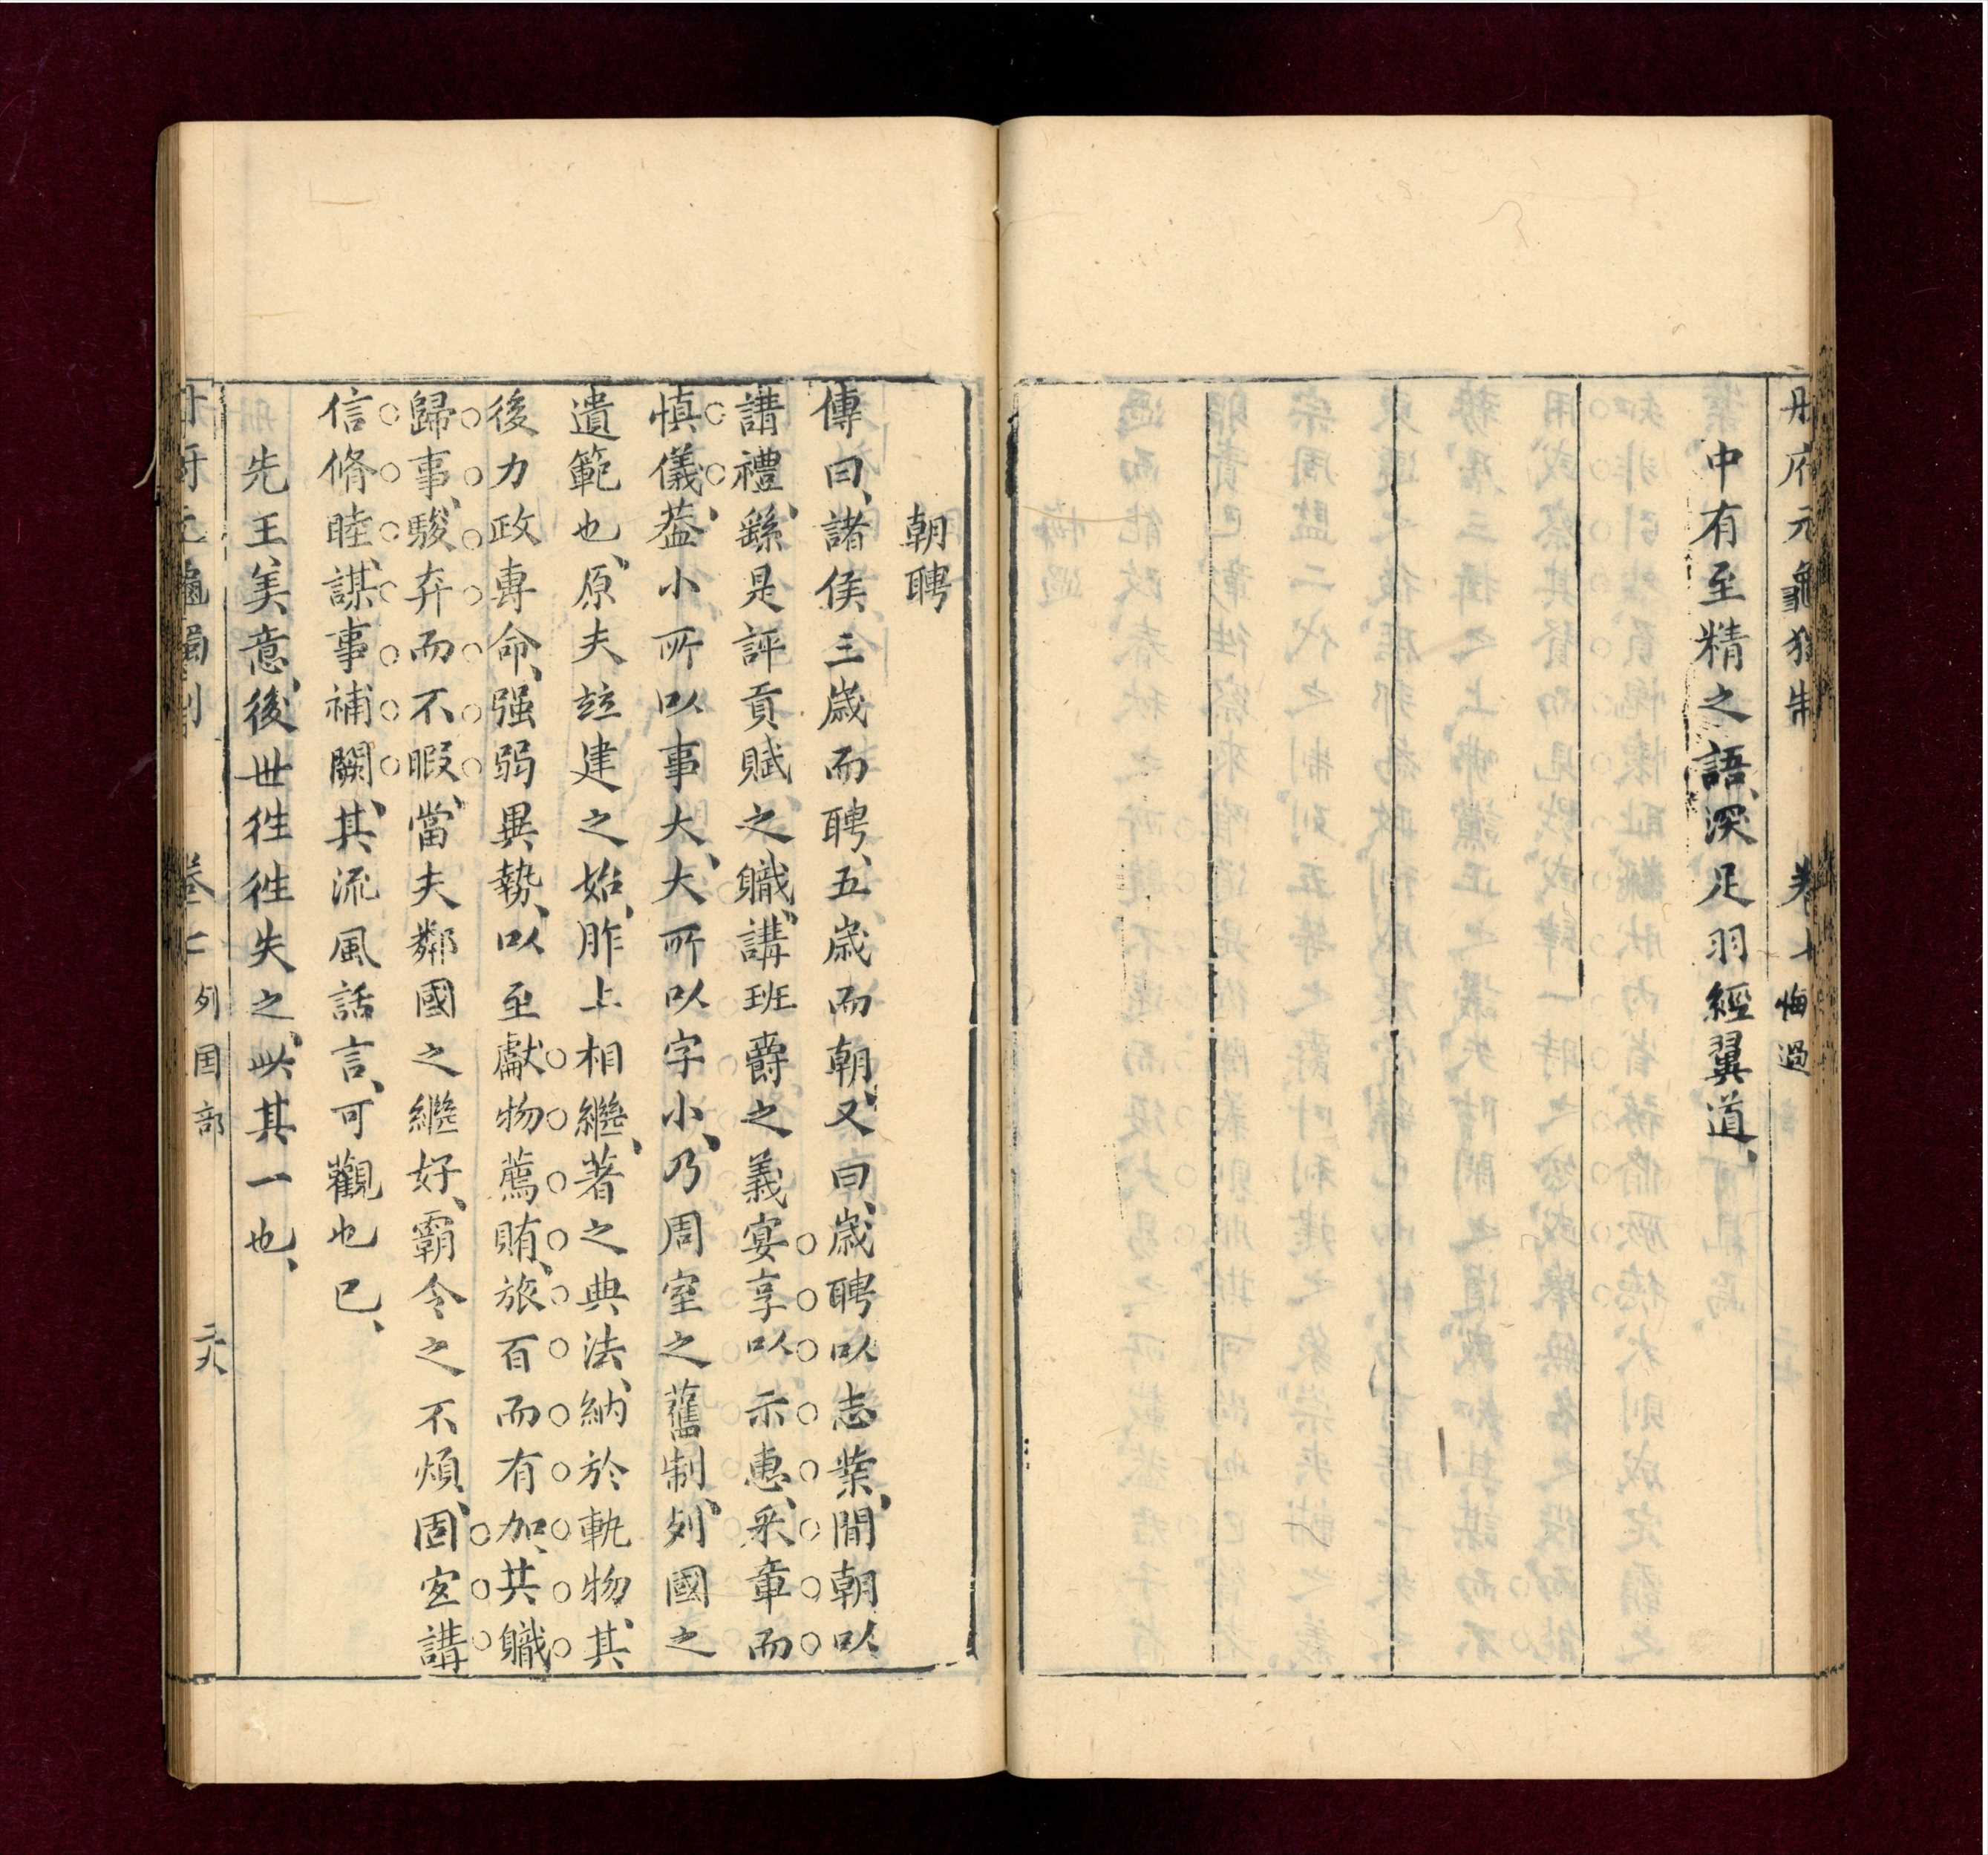 冊府元龜獨制 卷七 悔過
中有至精之語、深足羽經翼道、
朝聘
傳曰、諸侯三歲而聘、五歲而朝、又曰、歲聘以志業、閒朝以
講禮、繇是評貢賦之職、講班爵之義、宴享以示惠、采章而
慎儀、葢小所以事大、大所以字小、乃周室之舊制、列國之
遺範也、原夫竝建之始、胙土相繼、著之典法、納於軌物、其
後力政專命、强弱異勢、以至獻物薦賄、旅百而有加、其職
歸事、駿奔而不暇、當夫鄰國之繼好、霸令之不煩、固宜講
信脩睦、謀事補闕、其流風話言、可觀也已、
先王美意、後世徃徃失之、此其一也、
冊府元龜獨制 卷七 列国部 二十八